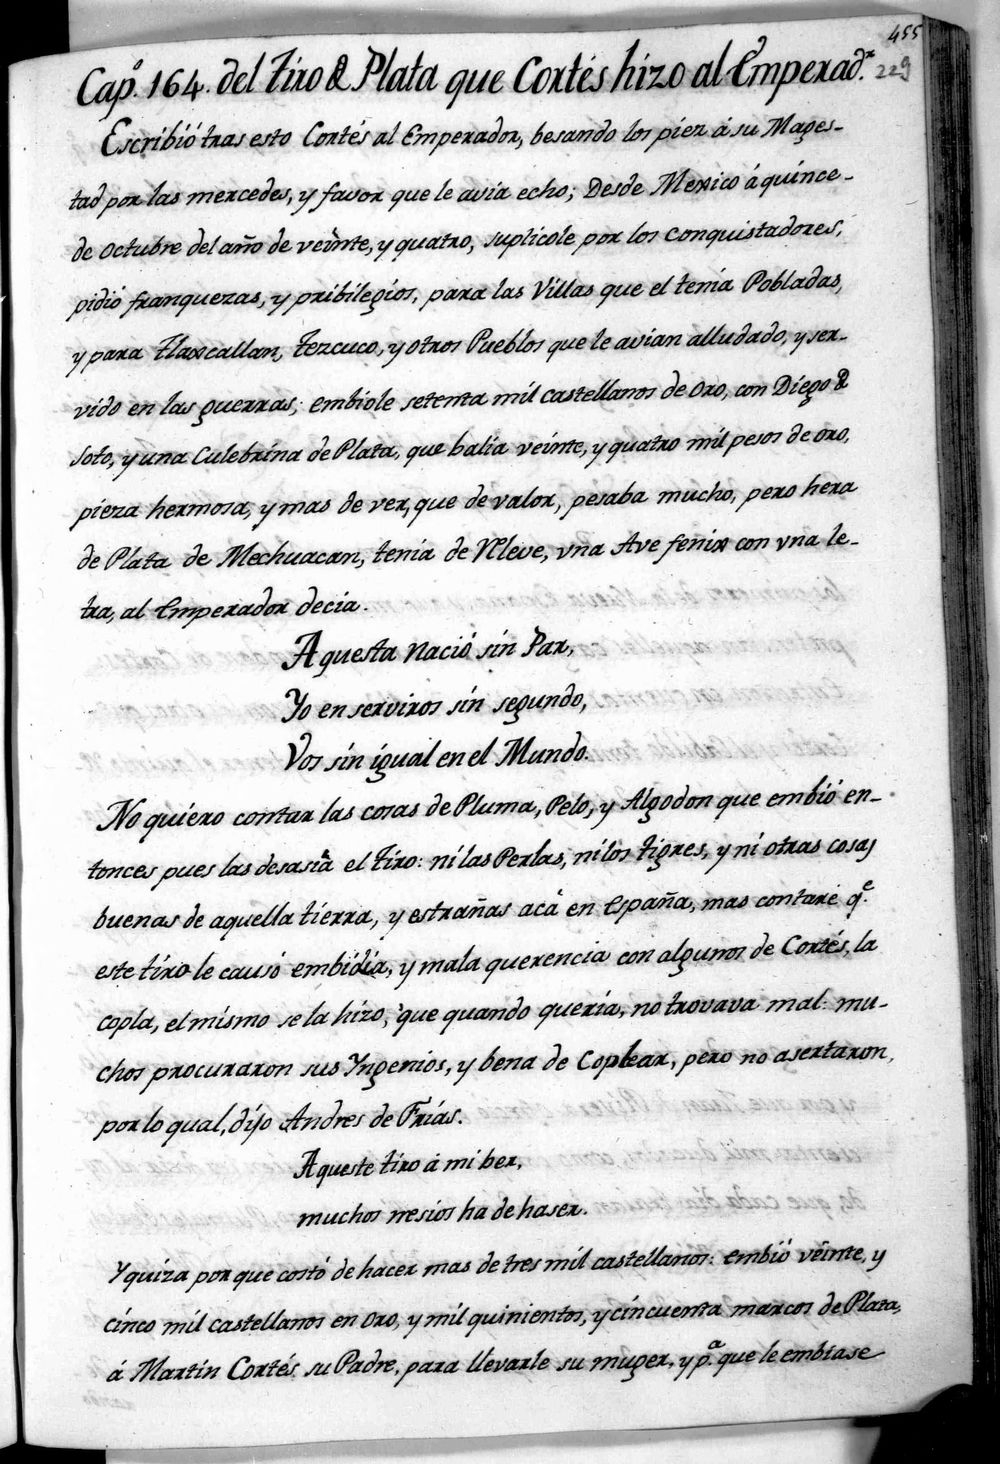 455
229
Capº. 164. del tiro de Plata que Cortés hizo al Emperadr.
Escribió tras esto Cortés al Emperador, besando los piez á su Mages-
tad por las mercedes, y favor que le avia echo; Desde Mexico á quince-
de Octubre del año de veinte, y quatro, suplicole por los conquistadores,
pidió franquezas, y pribilegios, para las Villas que el tenía Pobladas,
y para Tlaxcallan, Tezcuco, y otros Pueblos que le avian alludado, y ser-
vido en las guerras; embiole setenta mil castellanos de Oro, con Diego de
Soto, y una Culebrina de Plata, que balia veinte, y quatro mil pesos de oro,
pieza hermosa, y mas de ver, que de valor, pesaba mucho, pero hera
de Plata de Mechuacan, tenía de Rleve, vna Ave fenix con vna le-
tra, al Emperador decia.
Aquesta nació sin Par,
Yo en serviros sin segundo,
Vos sin igual en el Mundo.
No quiero contar las cosas de Pluma, Pelo, y Algodon que embió en-
tonces pues las desasia el tiro: ni las Perlas, ni los tigres, y ni otras cosas
buenas de aquella tierra, y estrañas acá en España, mas contaré qe.
este tiro le causó embidia, y mala querencia con algunos de Cortés, la
copla, el mismo se la hizo, que quando quería, no trovava mal: mu-
chos procuraron sus Yngenios, y bena de Coplear, pero no asertaron,
por lo qual, dijo Andres de Frías.
Aqueste tiro á mi ber,
muchos nesios ha de haser.
Y quiza por que costó de hacer mas de tres mil castellanos: embió veinte, y
cinco mil castellanos en oro, y mil quinientos, y cincuenta marcos de Plata,
á Martin Cortés su Padre, para llevarle su muger, y pa. que le embiase